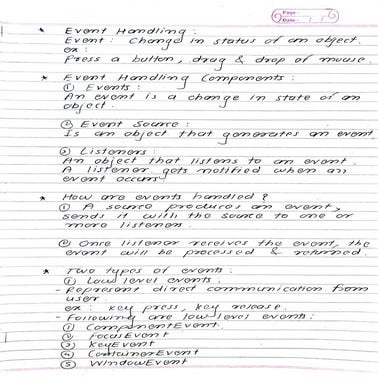 Page:
Date:
* Event Handling:
Event: Change in status of an object.
ex:
Press a button, drag & drop of mouse.
* Event Handling Components:
① Events:
An event is a change in state of an
object.
② Event Source:
Is an object that generates an event.
③ Listeners:
An object that listens to an event.
A listener gets notified when an
event occurs
* How are events handled?
① A source produces an event,
sends it with the source to one or
more listeners.
② Once listener receives the event, the
event will be processed & returned.
* Two types of events:
① Low level events.
- Represent direct communication from
user.
ex: key press, key release.
- Following are low level events:
① ComponentEvent.
② FocusEvent
③ KeyEvent
④ ContainerEvent
⑤ WindowEvent